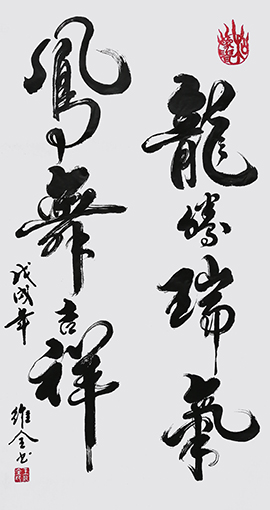 龍騰瑞氣
鳳舞吉祥
戊戌年
維全书